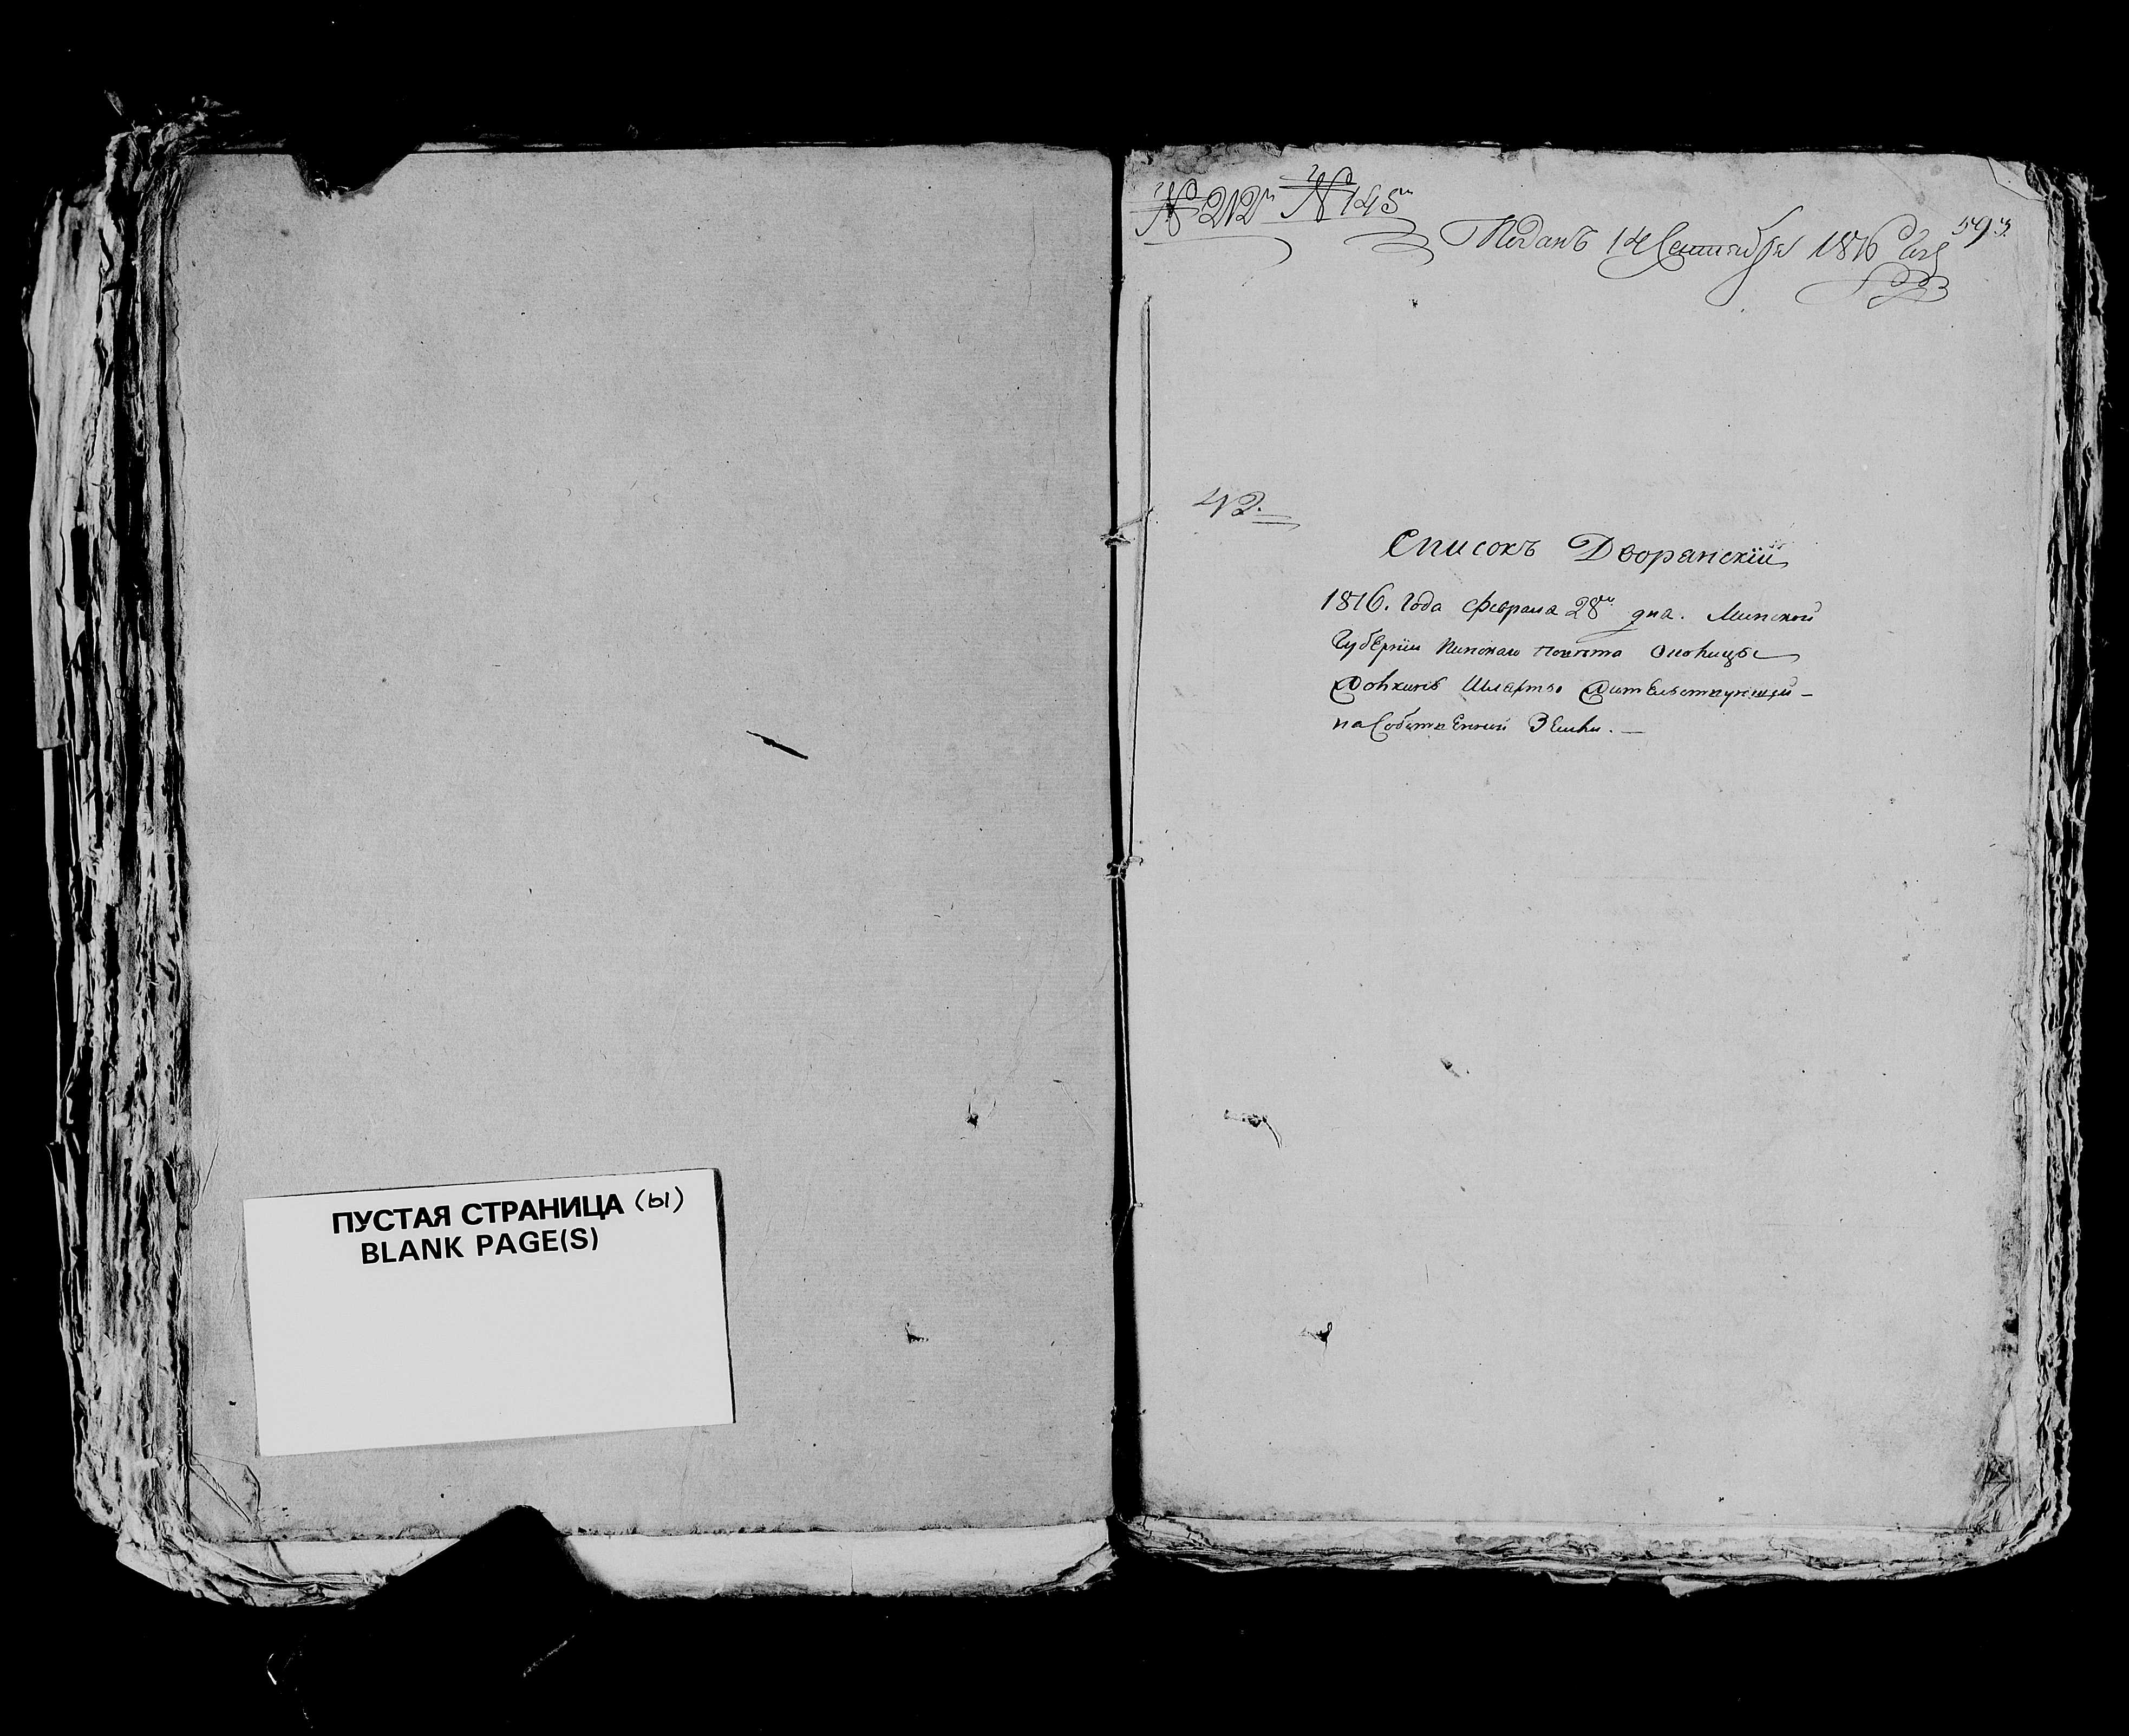 ПУСТАЯ СТРАНИЦА (Ы)
BLANK PAGE(S)
№ 212й № 145й
593.
Поданъ 14 Сентября 1816 Года
42.
Списокъ Дворянскій
1816. Года февраля 28го дня. Минской
Губерніи Пинскаго повѣта
Шляхты Жительствующей
на Собственной Земли.